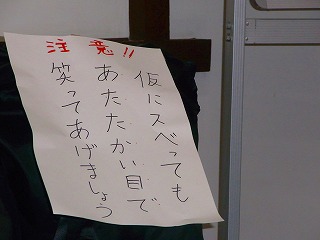 注意!!
仮にスベっても
あたたかい目で
笑ってあげましょう